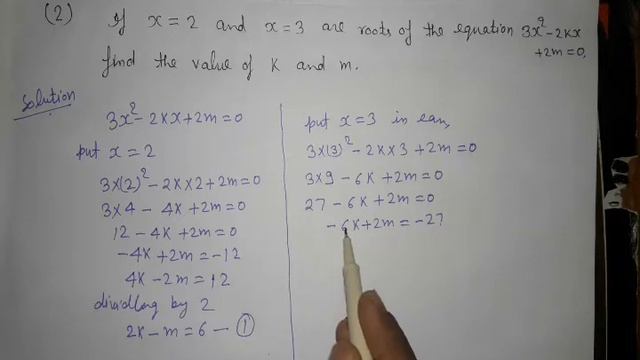 (2) If x = 2 and x = 3 are roots of the equation 3x² - 2kx
+2m = 0.
find the value of k and m.
Solution
3x² - 2kx + 2m = 0
put x = 2
3×(2)² - 2k×2 + 2m = 0
3×4 - 4k + 2m = 0
12 - 4k + 2m = 0
-4k + 2m = -12
4k - 2m = 12
dividing by 2
2k - m = 6 — ①
put x = 3 in eqn,
3×(3)² - 2k×3 + 2m = 0
3×9 - 6k + 2m = 0
27 - 6k + 2m = 0
- 6k + 2m = -27